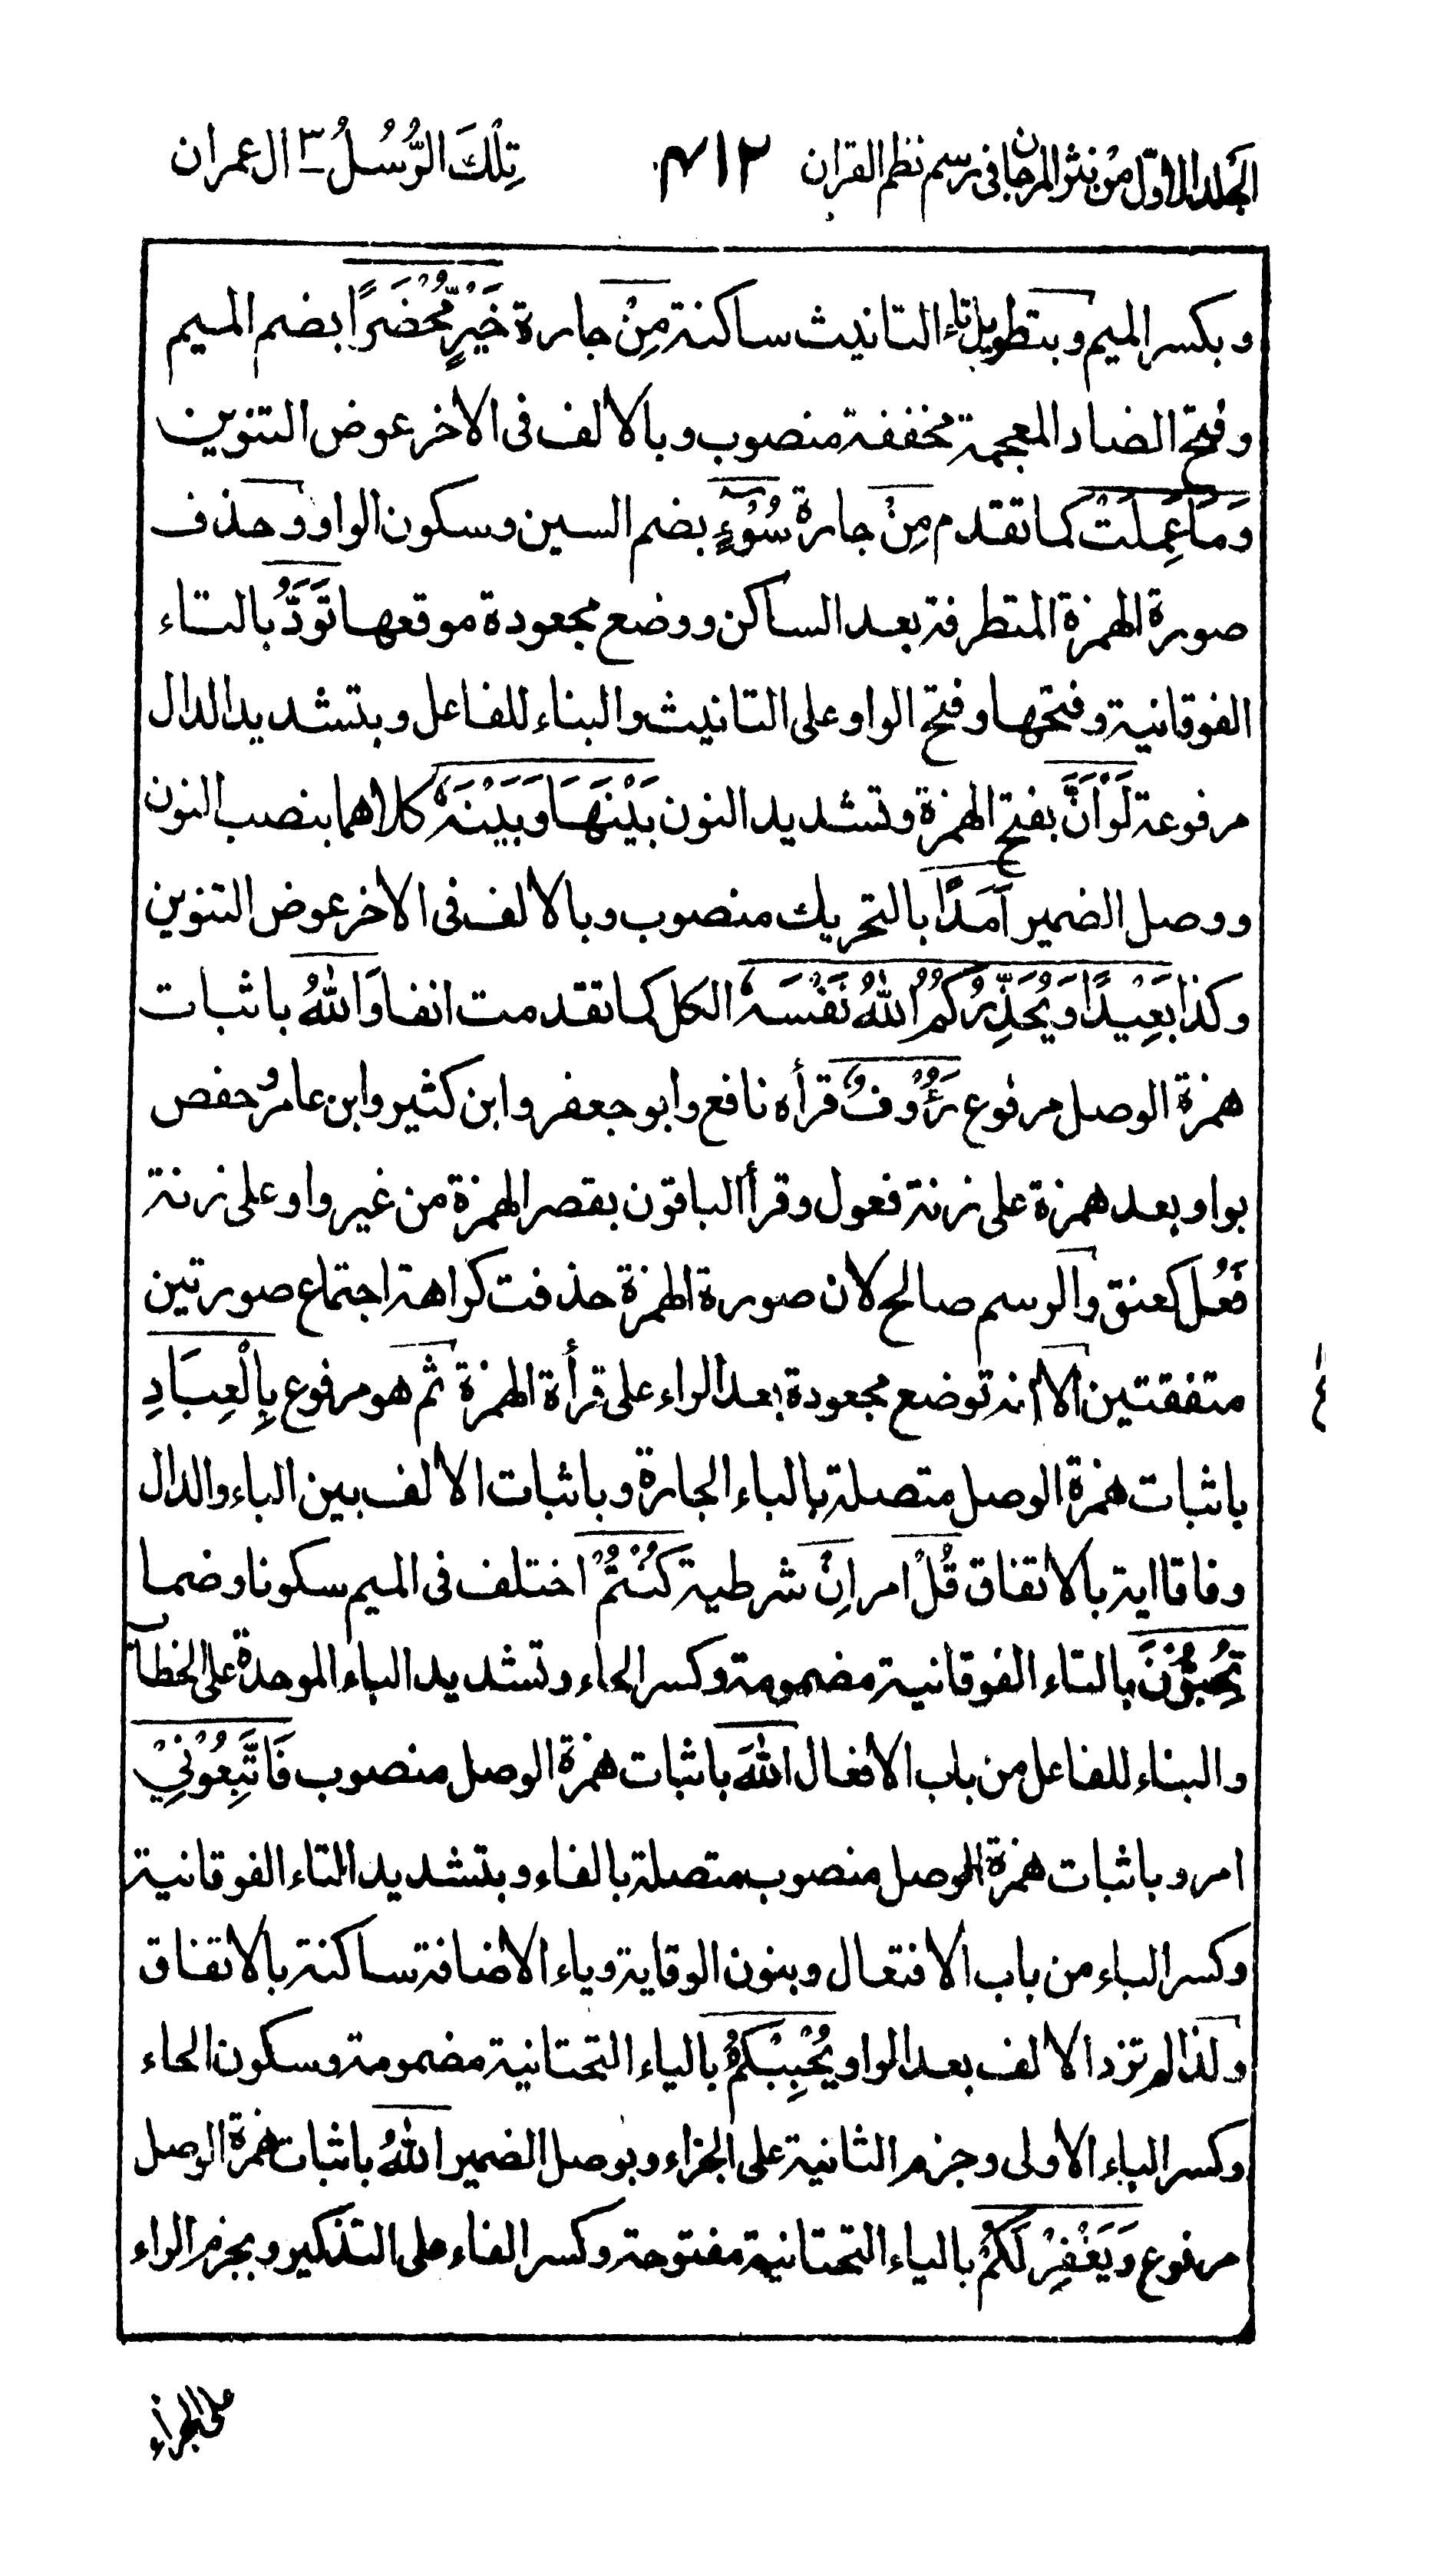 الجلد الاول من نثر المرجان فى رسم نظم القران ٤١٢ تِلْكَ الرُّسُلُ ٣ ال عمران
وبكسر الميم وبتطويل تاء التانيث ساكنة مِنْ جارة خَيْرٍ مُّحْضَرًا بضم الميم
وفتح الضاد المعجمة مخففة منصوب وبالالف فى الاخر عوض التنوين
وَمَا عَمِلَتْ كما تقدم مِنْ جارة سُوْٓءٍ بضم السين وسكون الواو وحذف
صورة الهمزة المتطرفة بعد الساكن ووضع مجعودة موقعها تَوَدُّ بالتاء
الفوقانية وفتحها وفتح الواو على التانيث والبناء للفاعل وبتشديد الدال
مرفوعة لَوْ اَنَّ بفتح الهمزة وتشديد النون بَيْنَهَا وَبَيْنَهٗ كلاهما بنصب النون
ووصل الضمير اَمَدًا بالتحريك منصوب وبالالف فى الاخر عوض التنوين
وكذا بَعِيْدًا وَيُحَذِّرُكُمُ اللّٰهُ نَفْسَهٗ الكل كما تقدمت انفا وَاللّٰهُ باثبات
همزة الوصل مرفوع رَءُوْفٌ قرأه نافع وابو جعفر وابن كثير وابن عامر وحفص
بواو بعد همزة على زنة فعول وقرأ الباقون بقصر الهمزة من غير واو على زنة
فَعُل كعنق والرسم صالح لان صورة الهمزة حذفت كراهة اجتماع صورتين
متفقتين الا انه توضع مجعودة بعد الراء على قرأة الهمزة ثم هو مرفوع بِالْعِبَادِ
باثبات همزة الوصل متصلة بالباء الجارة وباثبات الالف بين الباء والدال
وفاقا اية بالاتفاق قُلْ امر اِنْ شرطية كُنْتُمْ اختلف فى الميم سكونا وضما
تُحِبُّوْنَ بالتاء الفوقانية مضمومة وكسر الحاء وتشديد الباء الموحدة على الخطاب
والبناء للفاعل من باب الافعال اللّٰهَ باثبات همزة الوصل منصوب فَاتَّبِعُوْنِيْ
امر وباثبات همزة الوصل منصوب متصلة بالفاء وبتشديد التاء الفوقانية
وكسر الباء من باب الافتعال وبنون الوقاية وياء الاضافة ساكنة بالاتفاق
ولذا لم تزد الالف بعد الواو يُحْبِبْكُمُ بالياء التحتانية مضمومة وسكون الحاء
وكسر الباء الاولى وجزم الثانية على الجزاء وبوصل الضمير اللّٰهُ باثبات همزة الوصل
مرفوع وَيَغْفِرْ لَكُمْ بالياء التحتانية مفتوحة وكسر الفاء على التذكير وبجزم الراء
على الجزاء